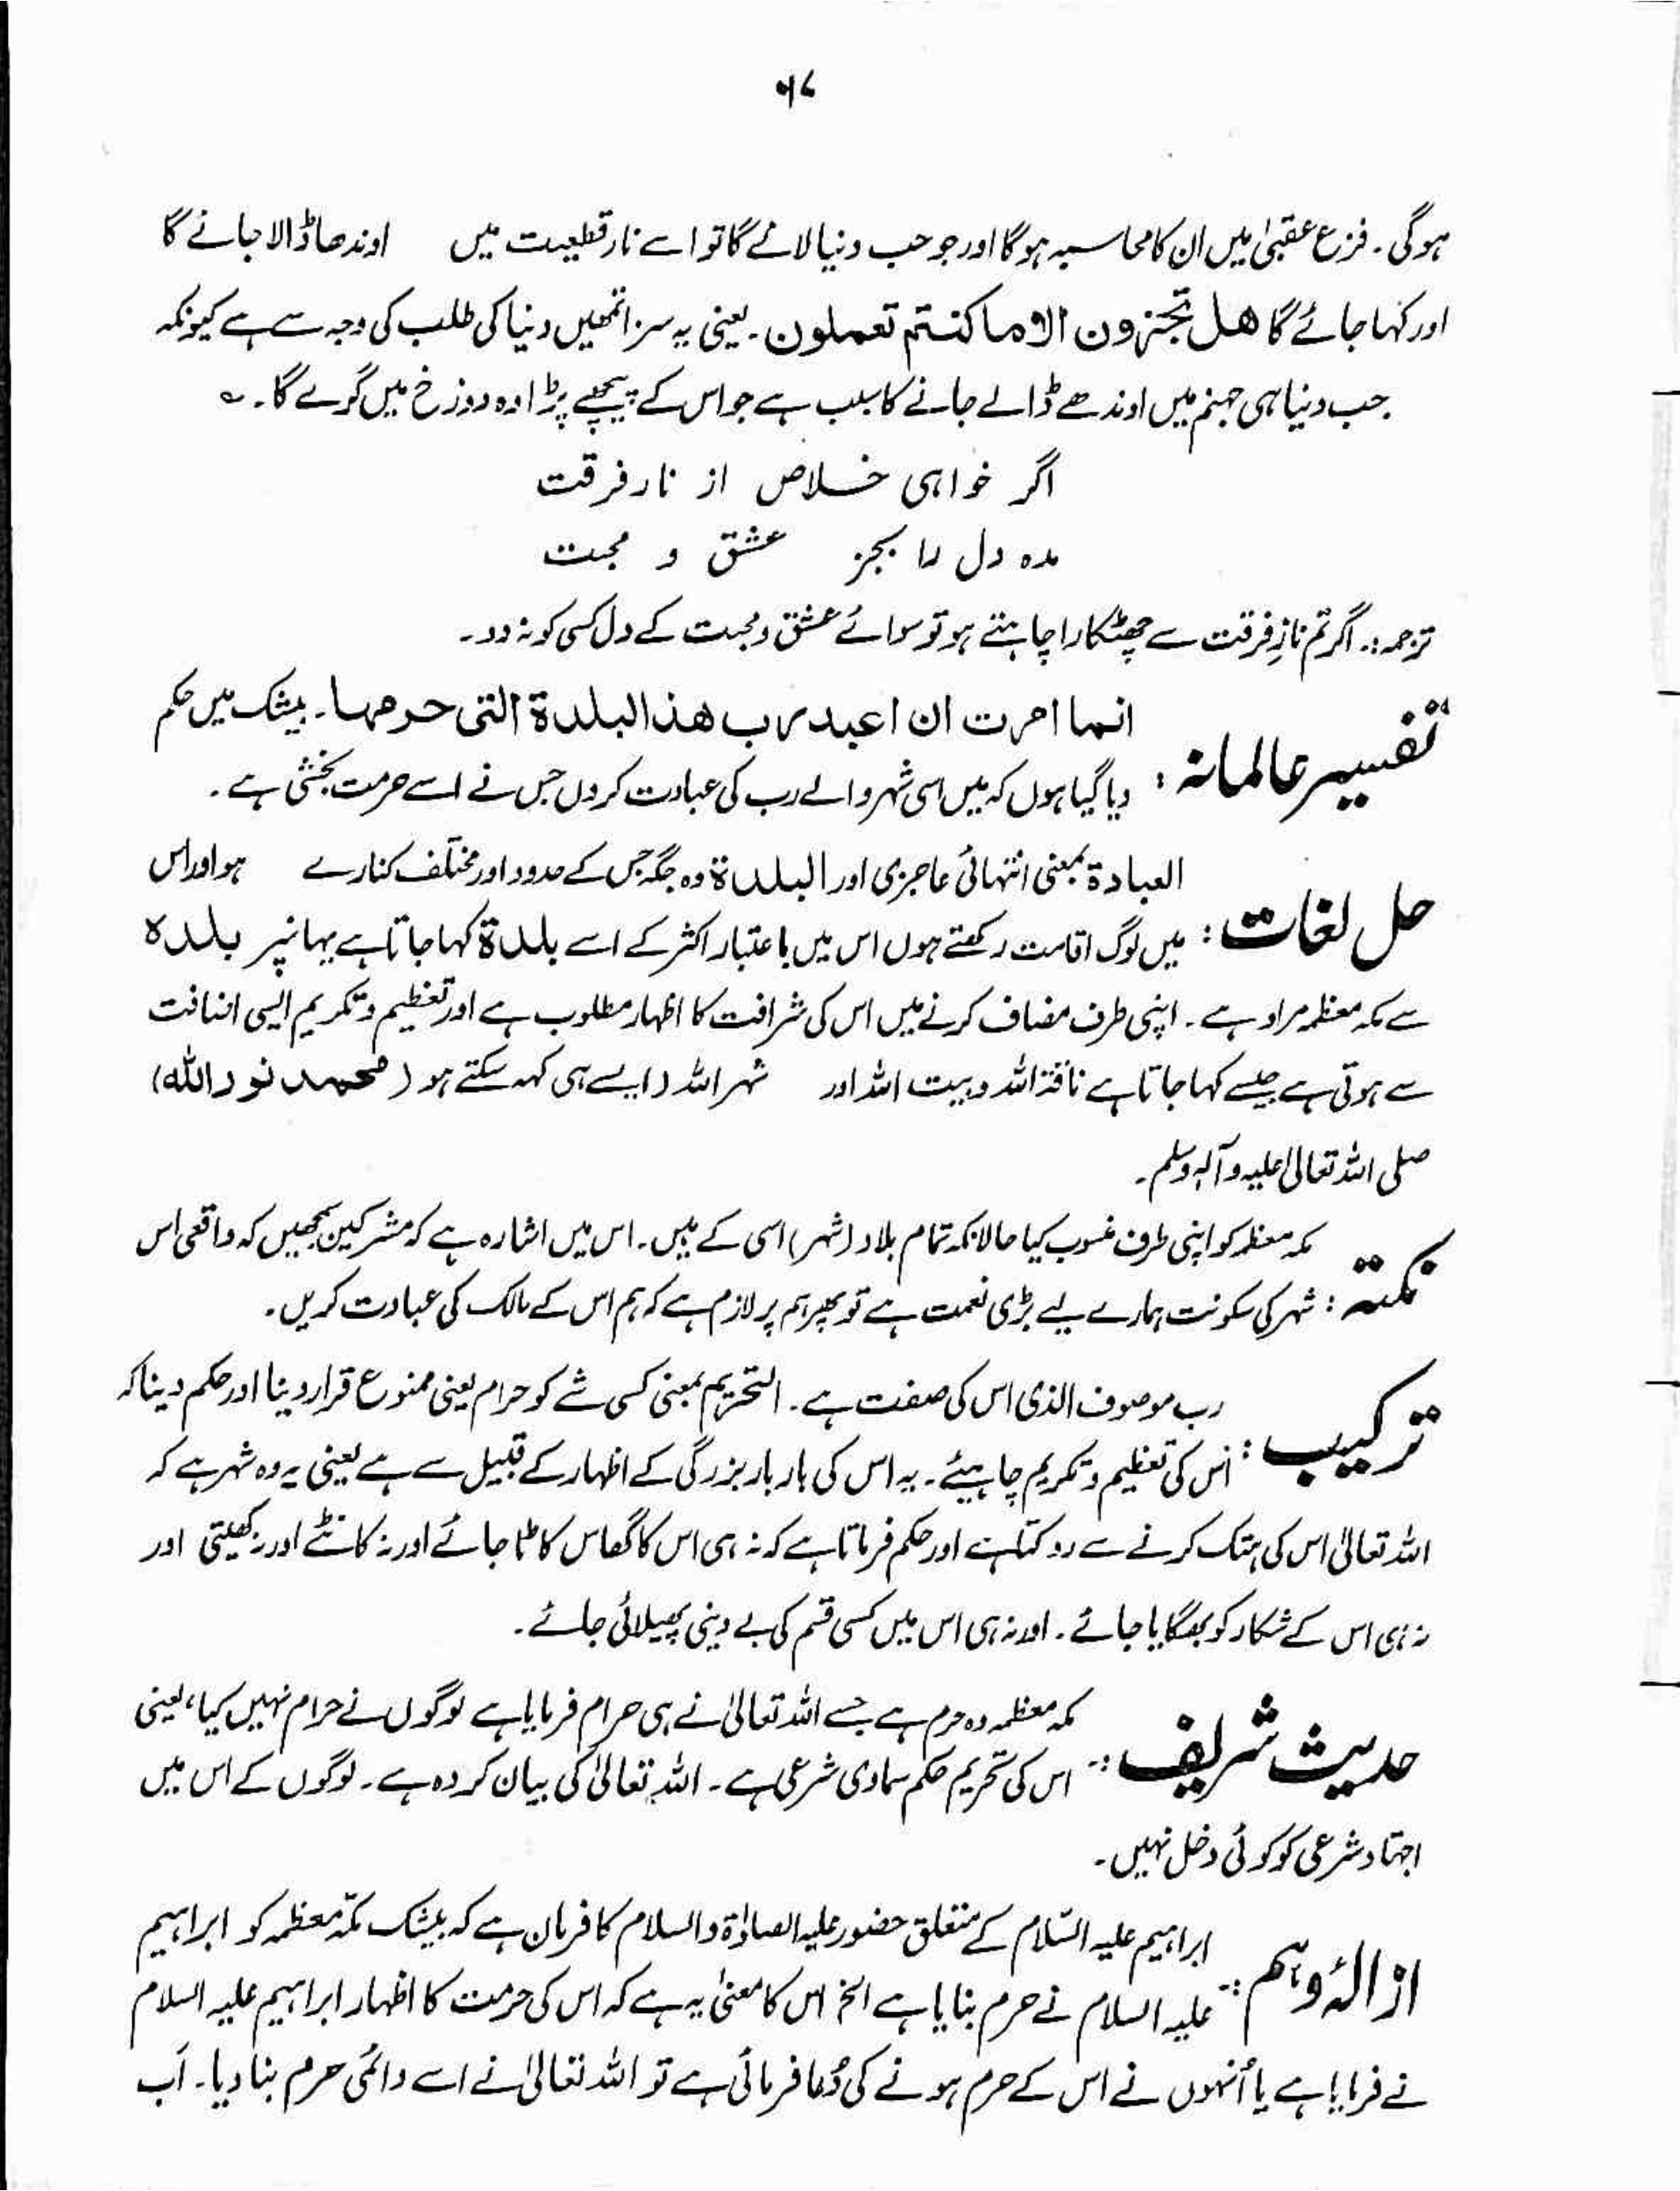 ہوگی۔ فزع عقبیٰ میں ان کا محاسبہ ہوگا اور جو حب دنیا لائے گا تو اسے نار قطعیت میں اوندھا ڈالا جائے گا
اور کہا جائے گا ھل تجزون الا ما کنتم تعملون۔ یعنی یہ سزا تمھیں دنیا کی طلب کی وجہ سے ہے کیونکہ
حب دنیا ہی جہنم میں اوندھے ڈالے جانے کا سبب ہے جو اس کے پیچھے پڑا وہ دوزخ میں گرے گا۔ ؎
اگر خواہی خلاص از نار فرقت
مدہ دل را بجز عشق و محبت
ترجمہ:۔ اگر تم نازِ فرقت سے چھٹکارا چاہتے ہو تو سوائے عشق و محبت کے دل کسی کو نہ دو۔
تفسیر عالمانہ : انما امرت ان اعبد رب ھذا البلدۃ التی حرمہا۔ بیشک میں حکم
دیا گیا ہوں کہ میں اسی شہر والے رب کی عبادت کروں جس نے اسے حرمت بخشی ہے۔
حل لغات : العبادۃ بمعنی انتہائی عاجزی اور البلدۃ وہ جگہ جس کے حدود اور مختلف کنارے ہو اور اس
میں لوگ اقامت رکھتے ہوں اس میں باعتبار اکثر کے اسے بلدۃ کہا جاتا ہے یہانپر بلدہ
سے مکہ معظمہ مراد ہے۔ اپنی طرف مضاف کرنے میں اس کی شرافت کا اظہار مطلوب ہے اور تعظیم و تکریم ایسی اضافت
سے ہوتی ہے جیسے کہا جاتا ہے ناقۃ اللہ و بیت اللہ اور شہر اللہ (ایسے ہی کہہ سکتے ہو (محمد نور اللہ)
صلی اللہ تعالیٰ علیہ وآلہ وسلم۔
نکتہ : مکہ معظمہ کو اپنی طرف منسوب کیا حالانکہ تمام بلاد (شہر) اسی کے ہیں۔ اس میں اشارہ ہے کہ مشرکین سمجھیں کہ واقعی اس
شہر کی سکونت ہمارے لیے بڑی نعمت ہے تو پھر ہم پر لازم ہے کہ ہم اس کے مالک کی عبادت کریں۔
ترکیب : رب موصوف الذی اس کی صفت ہے۔ التحریم بمعنی کسی شے کو حرام یعنی ممنوع قرار دینا اور حکم دینا کہ
اس کی تعظیم و تکریم چاہیئے۔ یہ اس کی بار بار بزرگی کے اظہار کے قبیل سے ہے یعنی یہ وہ شہر ہے کہ
اللہ تعالیٰ اس کی ہتک کرنے سے روکتا ہے اور حکم فرماتا ہے کہ نہ ہی اس کا گھاس کاٹا جائے اور نہ کانٹے اور نہ کھیتی اور
نہ ہی اس کے شکار کو بھگایا جائے۔ اور نہ ہی اس میں کسی قسم کی بے دینی پھیلائی جائے۔
حدیث شریف :۔ مکہ معظمہ وہ حرم ہے جسے اللہ تعالیٰ نے ہی حرام فرمایا ہے لوگوں نے حرام نہیں کیا، یعنی
اس کی تحریم حکم سماوی شرعی ہے۔ اللہ تعالیٰ کی بیان کردہ ہے۔ لوگوں کے اس میں
اجتہاد شرعی کو کوئی دخل نہیں۔
ازالۂ وہم :۔ ابراہیم علیہ السّلام کے متعلق حضور علیہ الصلوٰۃ والسلام کا فرمان ہے کہ بیشک مکّہ معظمہ کو ابراہیم
علیہ السلام نے حرم بنایا ہے الخ اس کا معنیٰ یہ ہے کہ اس کی حرمت کا اظہار ابراہیم علیہ السلام
نے فرمایا ہے یا اُنہوں نے اس کے حرم ہونے کی دُعا فرمائی ہے تو اللہ تعالیٰ نے اسے دائمی حرم بنا دیا۔ اَب